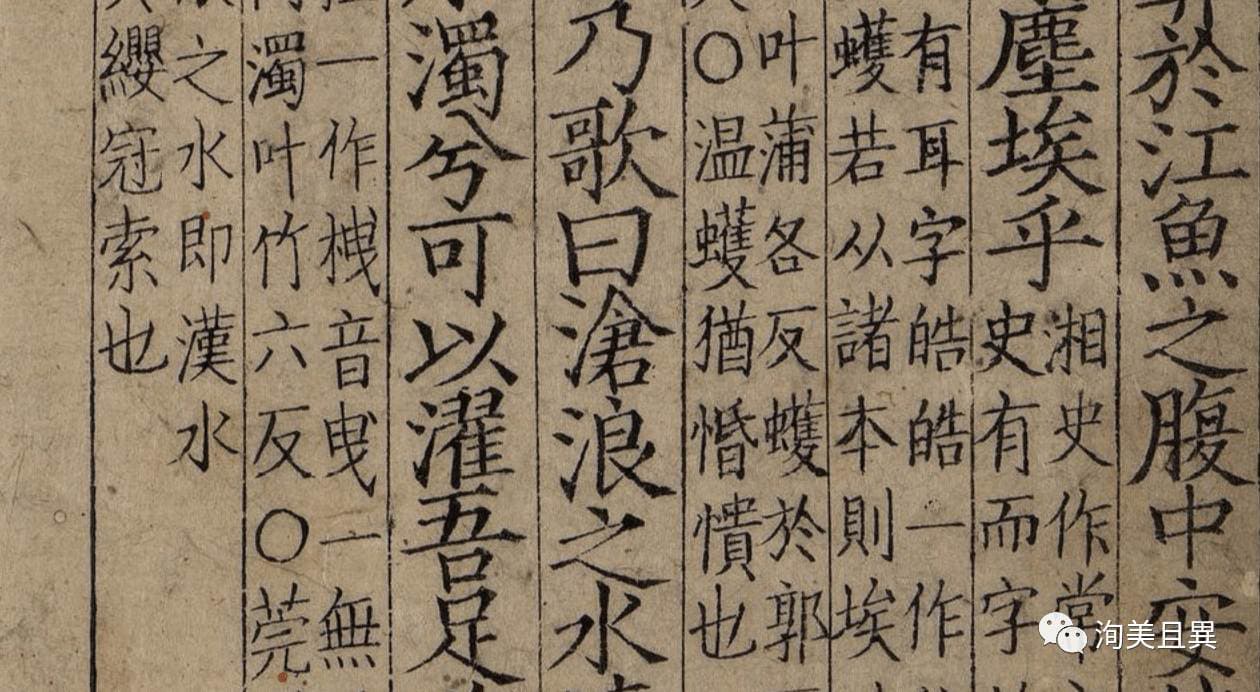 於江魚之腹中安
塵埃乎
湘史作常
史有而字
有耳字皓皓一作
蠖若从諸本則埃
叶蒲各反蠖於郭
○温蠖猶惛憒也
乃歌曰滄浪之水
濁兮可以濯吾足
一作栧音曳一無
濁叶竹六反○莞
之水即漢水
纓冠索也
洵美且異